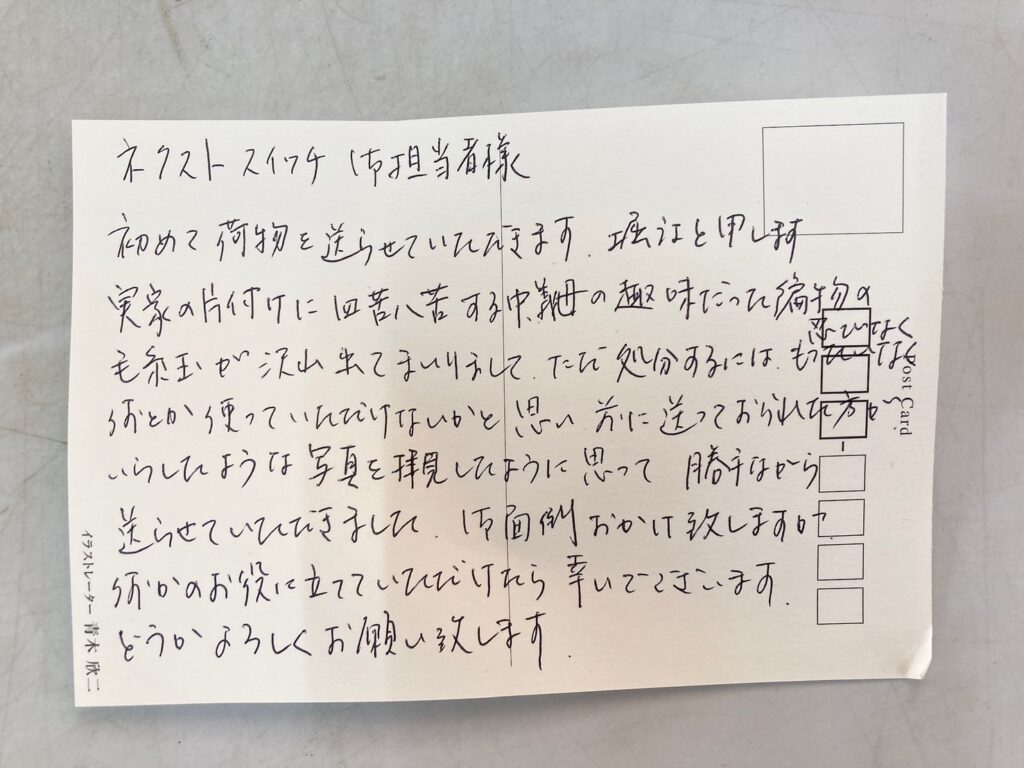 ネクスト スイッチ 御担当者様
初めて荷物を送らせていただきます. 堀江と申します
実家の片付けに四苦八苦する中、義母の趣味だった編物の
毛糸玉が沢山出てまいりまして、ただ処分するには
何とか使っていただけないかと思い 前に送っておられた方が
いらしたような写真を拝見したように思って 勝手ながら
送らせていただきました. 御面倒おかけ致しますが
何かのお役に立てていただけたら幸いでございます.
どうかよろしくお願い致します.
Post Card
イラストレーター 青木 欣二